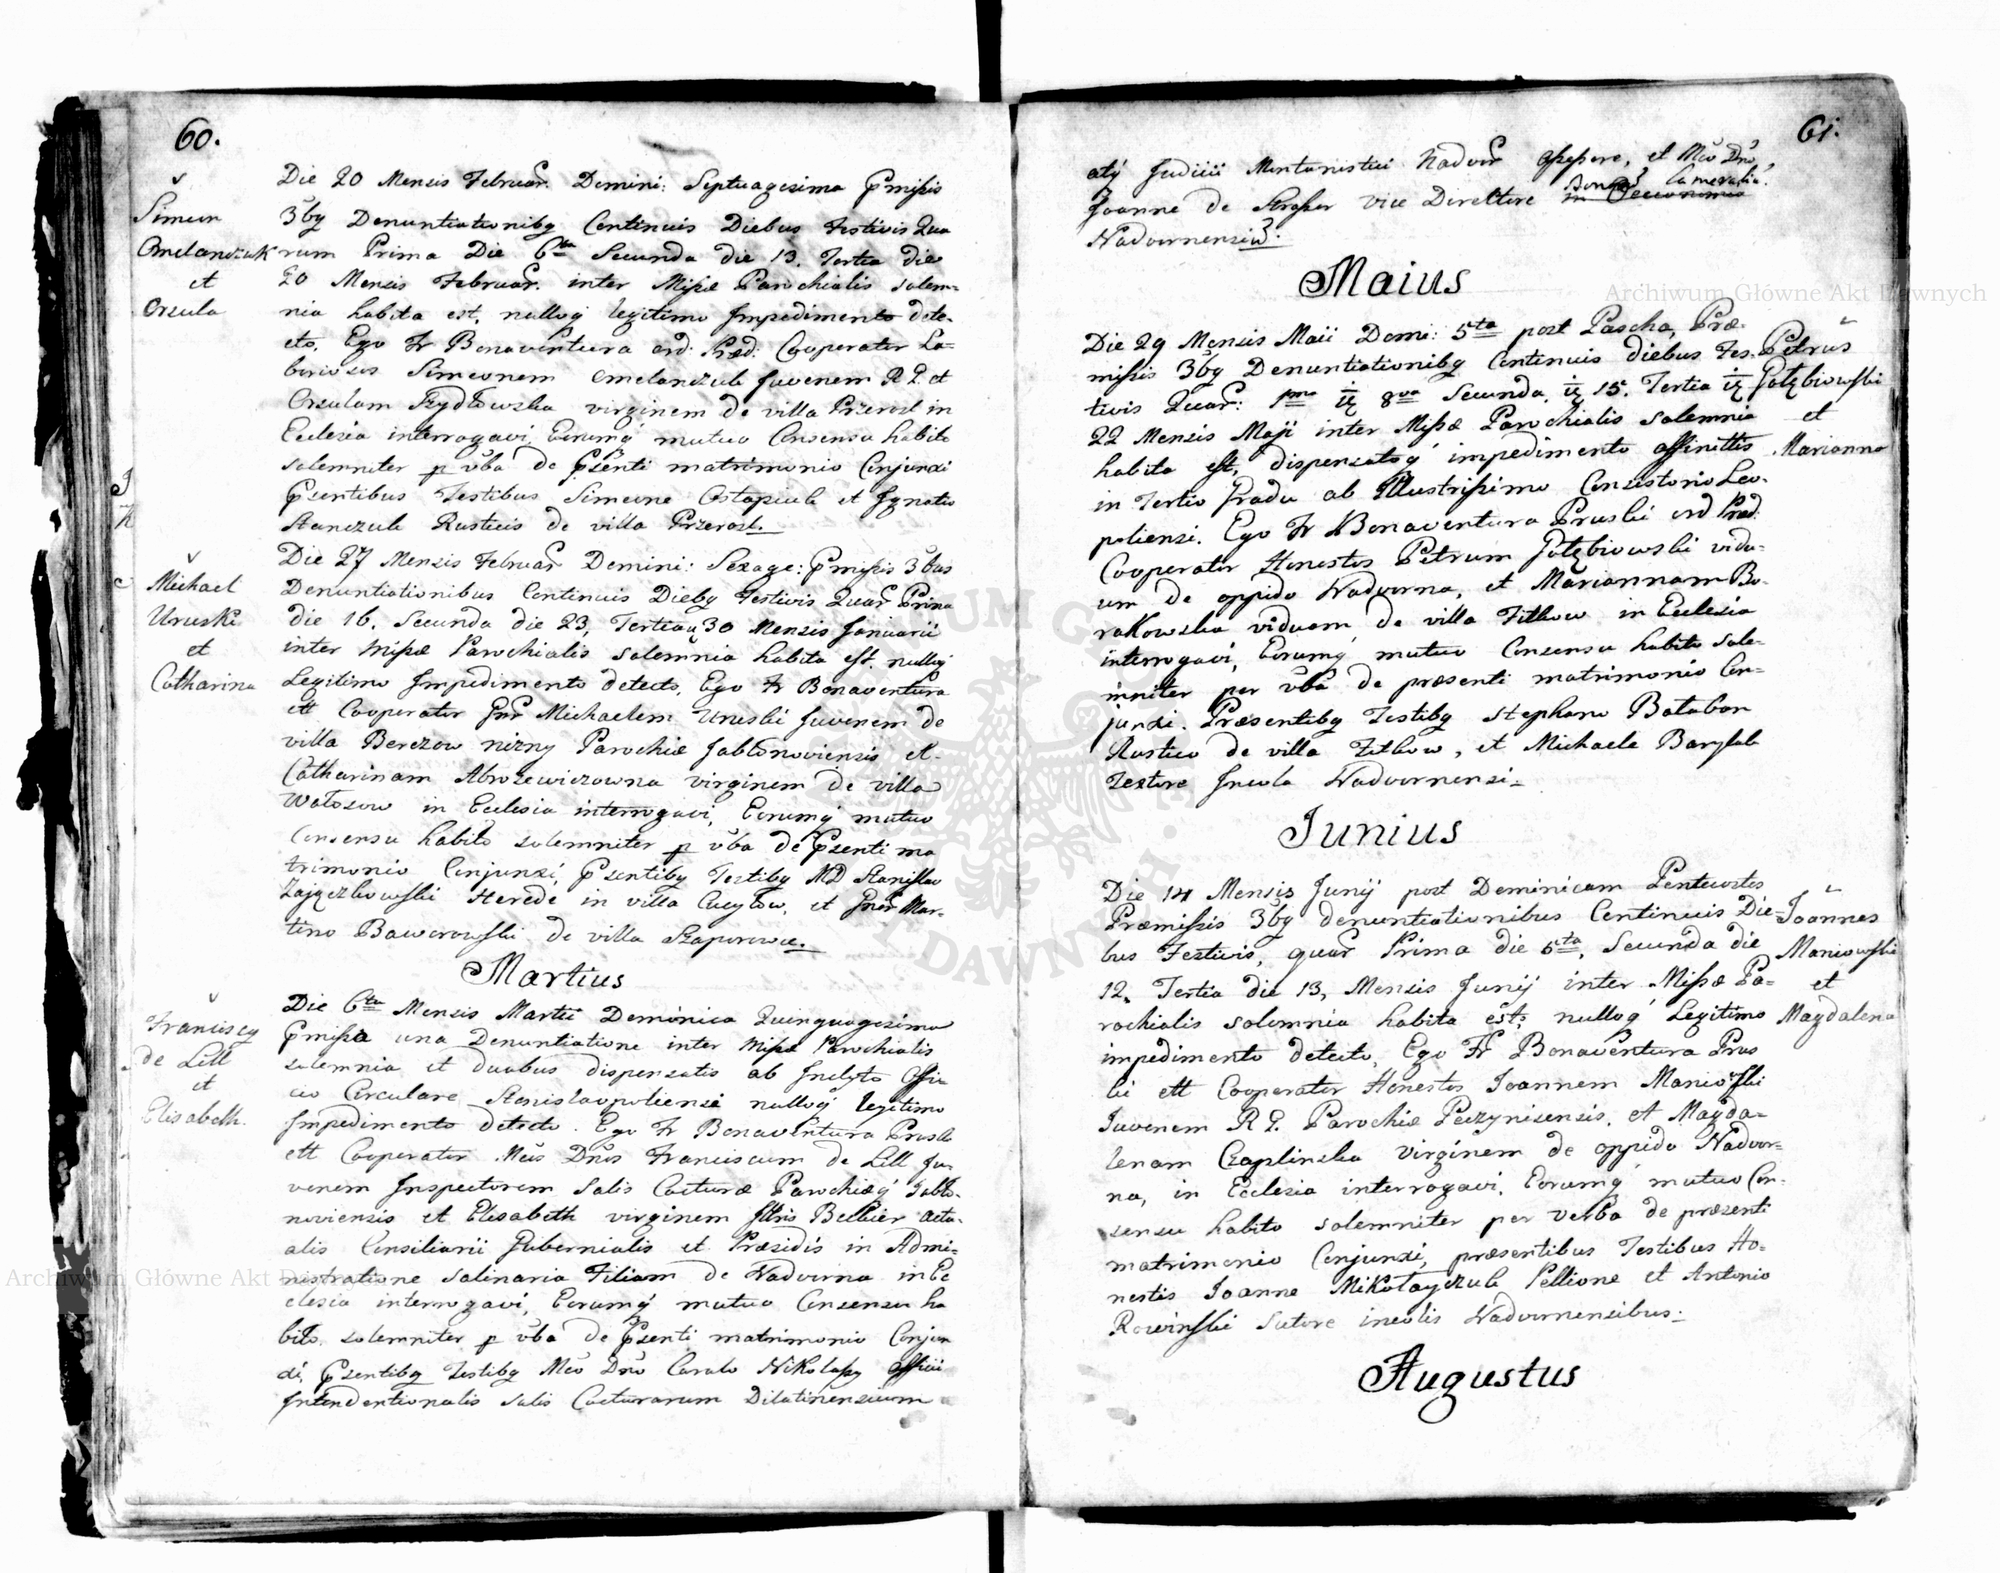 60.
Simeon
Omelanczuk
et
Orsula
Die 20 Mensis Februar. Domini: Septuagesima Pmißis
3bq Denuntiationibq Continuis Diebus Festivis Qua
rum Prima Die 6ta Secunda die 13. Tertia die
20 Mensis Februar. inter Mißæ Parochialis solem-
nia habita est, nulloq legitimo Impedimento dete-
cto, Ego Fr Bonaventura ord: Præd: Cooperator La-
boriosos Simeonem Omelanczuk Juvenem R L et
Orsulam Szydłowska virginem de villa Przerosl in
Ecclesia interrogavi, Eorumq mutuo Consensu habito
solemniter p vba de Psenti matrimonio Conjunxi
Psentibus Testibus Simeone Ostapiuk et Ignatio
Stanczuk Rusticis de villa Przerosl.
Michael
Uruski
et
Catharina
Die 27 Mensis Februar Domini: Sexage: Pmißis 3bus
Denuntiationibus Continuis Diebq Festivis Quar Prima
die 16. Secunda die 23, Tertia 30 Mensis Januarii
inter Mißæ Parochialis solemnia habita est, nulloq
Legitimo Impedimento detecto, Ego Fr Bonaventura
ett Cooperator Gnr Michaelem Uruski Juvenem de
villa Berezow nizny Parochiæ Jabłonoviensis et
Catharinam Abrozewiczowna virginem de villa
Wołosow in Ecclesia interrogavi, Eorumq mutuo
Consensu habito solemniter p vba de Psenti ma
trimonio Conjunxi, Psentibq Testibq MD Stanislao
Zajączkowski Herede in villa Cucyłow, et Gner Mar-
tino Baworowski de villa Szaporowce.
Martius
Franciscq
de Lill
et
Elisabeth.
Die 6ta Mensis Martii Dominica Quinquagesima
Pmißa una Denuntiatione inter Mißæ Parochialis
solemnia et duabus dispensatis ab Inclyto Offi-
cio Circulare Stanislaopoliensi nulloq legitimo
Impedimento detecto. Ego Fr Bonaventura Pruski
ett Cooperator Mcus Dnus Franciscum de Lill Ju-
venem Inspectorem Salis Cocturæ Parochiæq Jabło-
noviensis et Elisabeth virginem Illris Bellier actu-
alis Consiliarii Gubernialis et Præsidis in Admi-
nistratione Salinaria Filiam de Nadvorna in Ec
clesia interrogavi, Eorumq mutuo Consensu ha
bito solemniter p vba de Psenti matrimonio Conjun
xi, Psentibq Testibq Mco Dno Carolo Nikolaßy Officii
Intendentionalis Salis Cocturarum Dilatinensium
61.
atq Judicii Montanistici Nadvor Aßeßore, et Mco Dno
Joanne de Straßer vice Directore in Oeconomia
Bonor Cameraliu
Nadvornensiu.
Maius
Die 29 Mensis Maii Domi: 5ta post Pascha, Præ-
mißis 3bq Denuntiationibq Continuis diebus Fes-
tivis Quar: 1ma 8va Secunda, 15. Tertia
22 Mensis Maji inter Mißæ Parochialis solemnia
habita est, dispensatoq impedimento affinittis
in Tertio Gradu ab Illustrißimo Consistorio Leo-
poliensi. Ego Fr Bonaventura Pruski ord Præd.
Cooperator Honestos Petrum Gołębiowski vidu-
um de oppido Nadvorna, et Mariannam Bo-
rakowska viduam de villa Fitkow in Ecclesia
interrogavi, Eorumq mutuo Consensu habito sole-
mniter per vba de præsenti matrimonio Con-
junxi. Præsentibq Testibq Stephano Bałaban
Rustico de villa Fitkow, et Michaele Baryluk
Textore Incola Nadvornensi.
Petrus
Gołębiowski
et
Marianna
Junius
Die 14 Mensis Junij post Dominicam Pentecostes
Præmißis 3bq denuntiationibus Continuis Die-
bus Festivis, quar Prima die 5ta, Secunda die
12. Tertia die 13, Mensis Junij inter Mißæ Pa-
rochialis solemnia habita est, nulloq Legitimo
impedimento detecto, Ego Fr Bonaventura Prus
ki ett Cooperator Honestos Joannem Maniowski
Juvenem R L. Parochiæ Peczynisensis, et Magda-
lenam Czaplinska virginem de oppido Nadvor-
na, in Ecclesia interrogavi, Eorumq mutuo Con-
sensu habito solemniter per verba de præsenti
matrimonio Conjunxi, præsentibus Testibus Ho-
nestis Joanne Mikołayczuk Pellione et Antonio
Rowinski Sutore incolis Nadvornensibus.
Joannes
Maniowski
et
Magdalena
Augustus
Archiwum Główne Akt Dawnych
Archiwum Główne Akt Dawnych